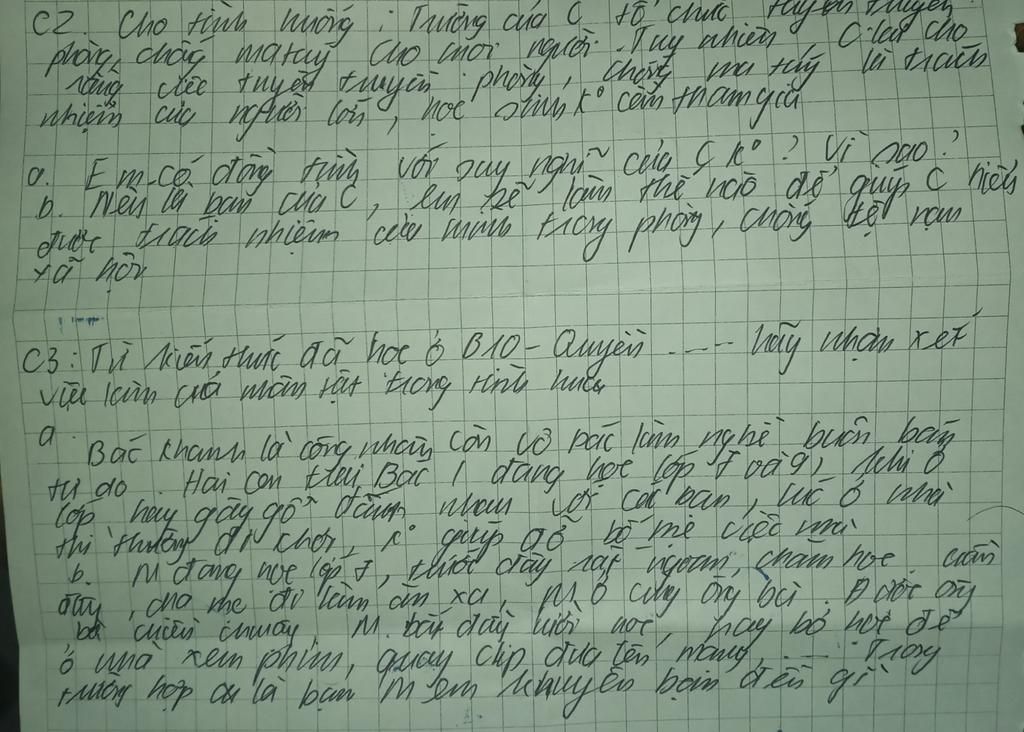 C2. Cho tình huống: Trường của C tổ chức tuyên truyền
phòng, chống ma túy cho mọi người. Tuy nhiên C lại cho
rằng việc tuyên truyền phòng, chống ma túy là trách
nhiệm của người lớn, học sinh k° cần tham gia
a. Em có đồng tình với suy nghĩ của C k°? Vì sao?
b. Nếu là bạn của C, em sẽ làm thế nào để giúp C hiểu
được trách nhiệm của mình trong phòng, chống tệ nạn
xã hội
C3: Từ kiến thức đã học ở B10 - Quyền ---- hãy nhận xét
việc làm của nhân vật trong tình huống
a. Bác Khanh là công nhân còn vợ bác làm nghề buôn bán
tự do. Hai con trai Bác đang học lớp 7 và 9, khi ở
lớp hay gây gổ đánh nhau với các bạn, lúc ở nhà
thì thường đi chơi, k° giúp đỡ bố mẹ việc nhà
b. M đang học lớp 7, trước đây rất ngoan, chăm học. Gần
đây, cha mẹ đi làm ăn xa, M ở cùng ông bà. Được ông
bà chiều chuộng, M bắt đầy lười học, hay bỏ học để
ở nhà xem phim, quay clip đưa lên mạng, ---- Trong
trường hợp là bạn M em khuyên bạn điều gì